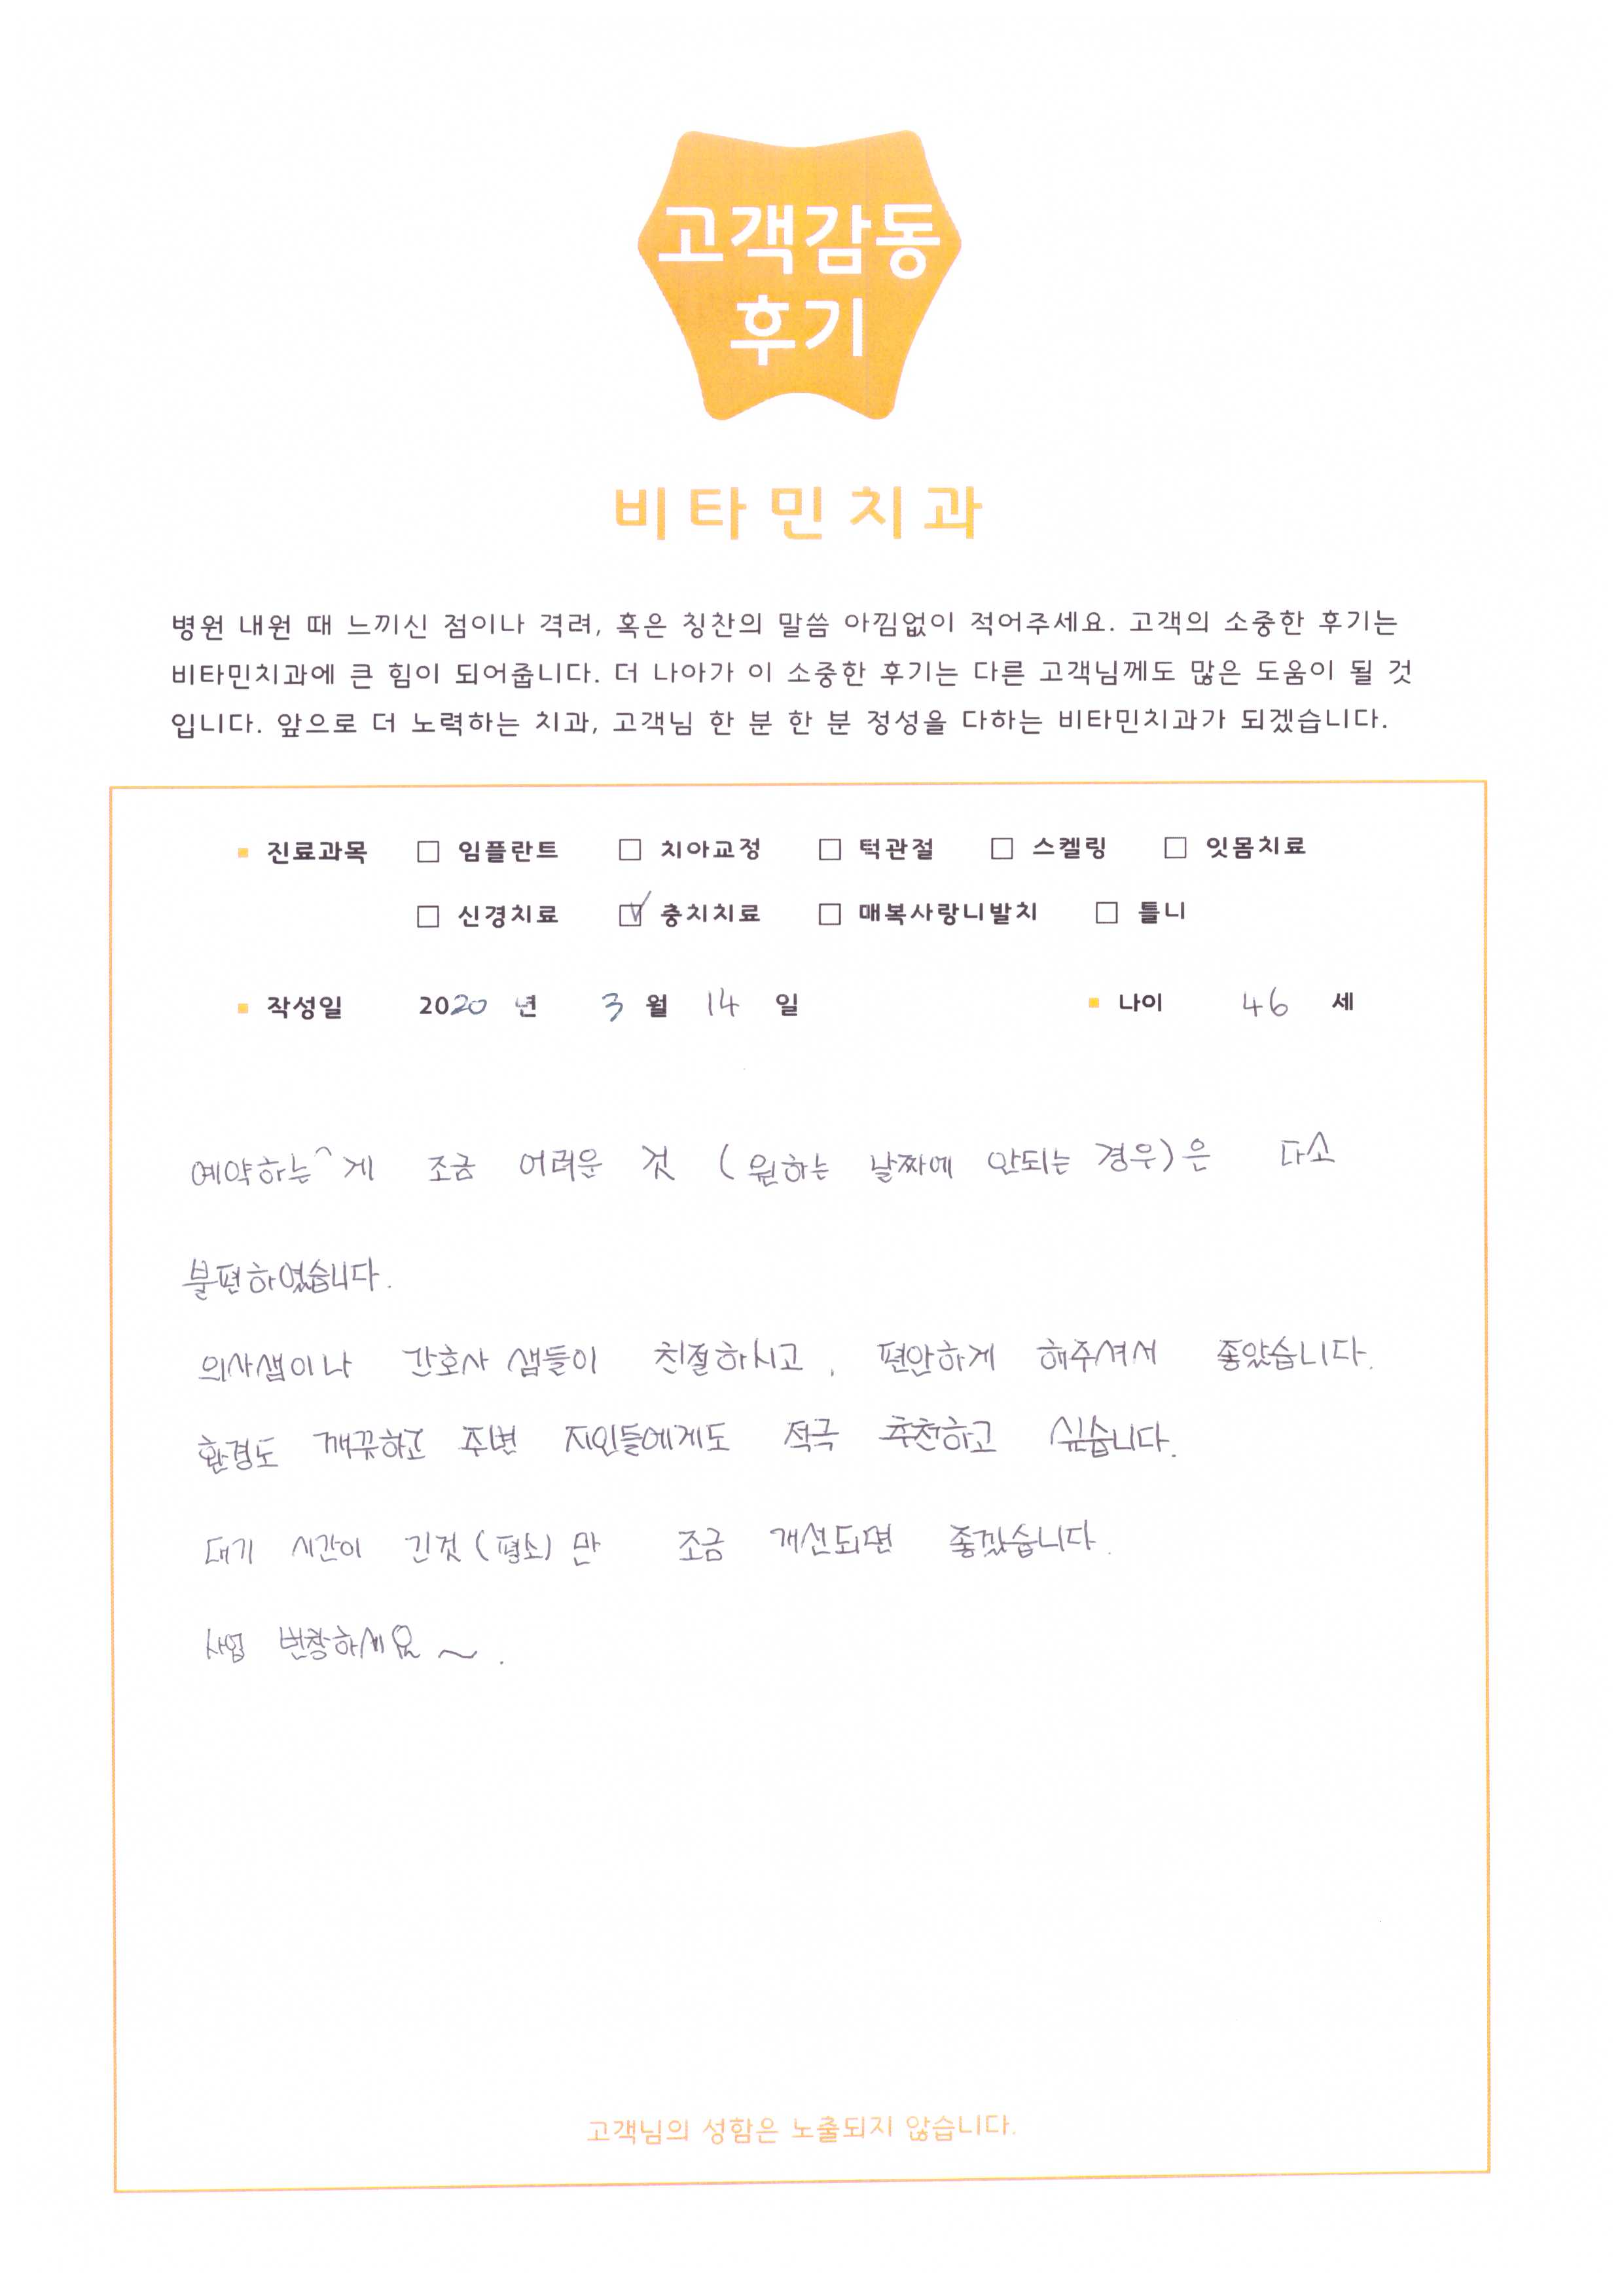 고객감동
후기
비타민치과
병원 내원 때 느끼신 점이나 격려, 혹은 칭찬의 말씀 아낌없이 적어주세요. 고객의 소중한 후기는
비타민치과에 큰 힘이 되어줍니다. 더 나아가 이 소중한 후기는 다른 고객님께도 많은 도움이 될 것
입니다. 앞으로 더 노력하는 치과, 고객님 한 분 한 분 정성을 다하는 비타민치과가 되겠습니다.
▪ 진료과목 □ 임플란트 □ 치아교정 □ 턱관절 □ 스켈링 □ 잇몸치료
□ 신경치료 ☑ 충치치료 □ 매복사랑니발치 □ 틀니
▪ 작성일 2020 년 3 월 14 일 ▪ 나이 46 세
예약하는 게 조금 어려운 것 (원하는 날짜에 안되는 경우)은 다소
불편하였습니다.
의사샘이나 간호사 샘들이 친절하시고, 편안하게 해주셔서 좋았습니다.
환경도 깨끗하고 주변 지인들에게도 적극 추천하고 싶습니다.
대기 시간이 긴것(평소)만 조금 개선되면 좋겠습니다.
사업 번창하세요~.
고객님의 성함은 노출되지 않습니다.